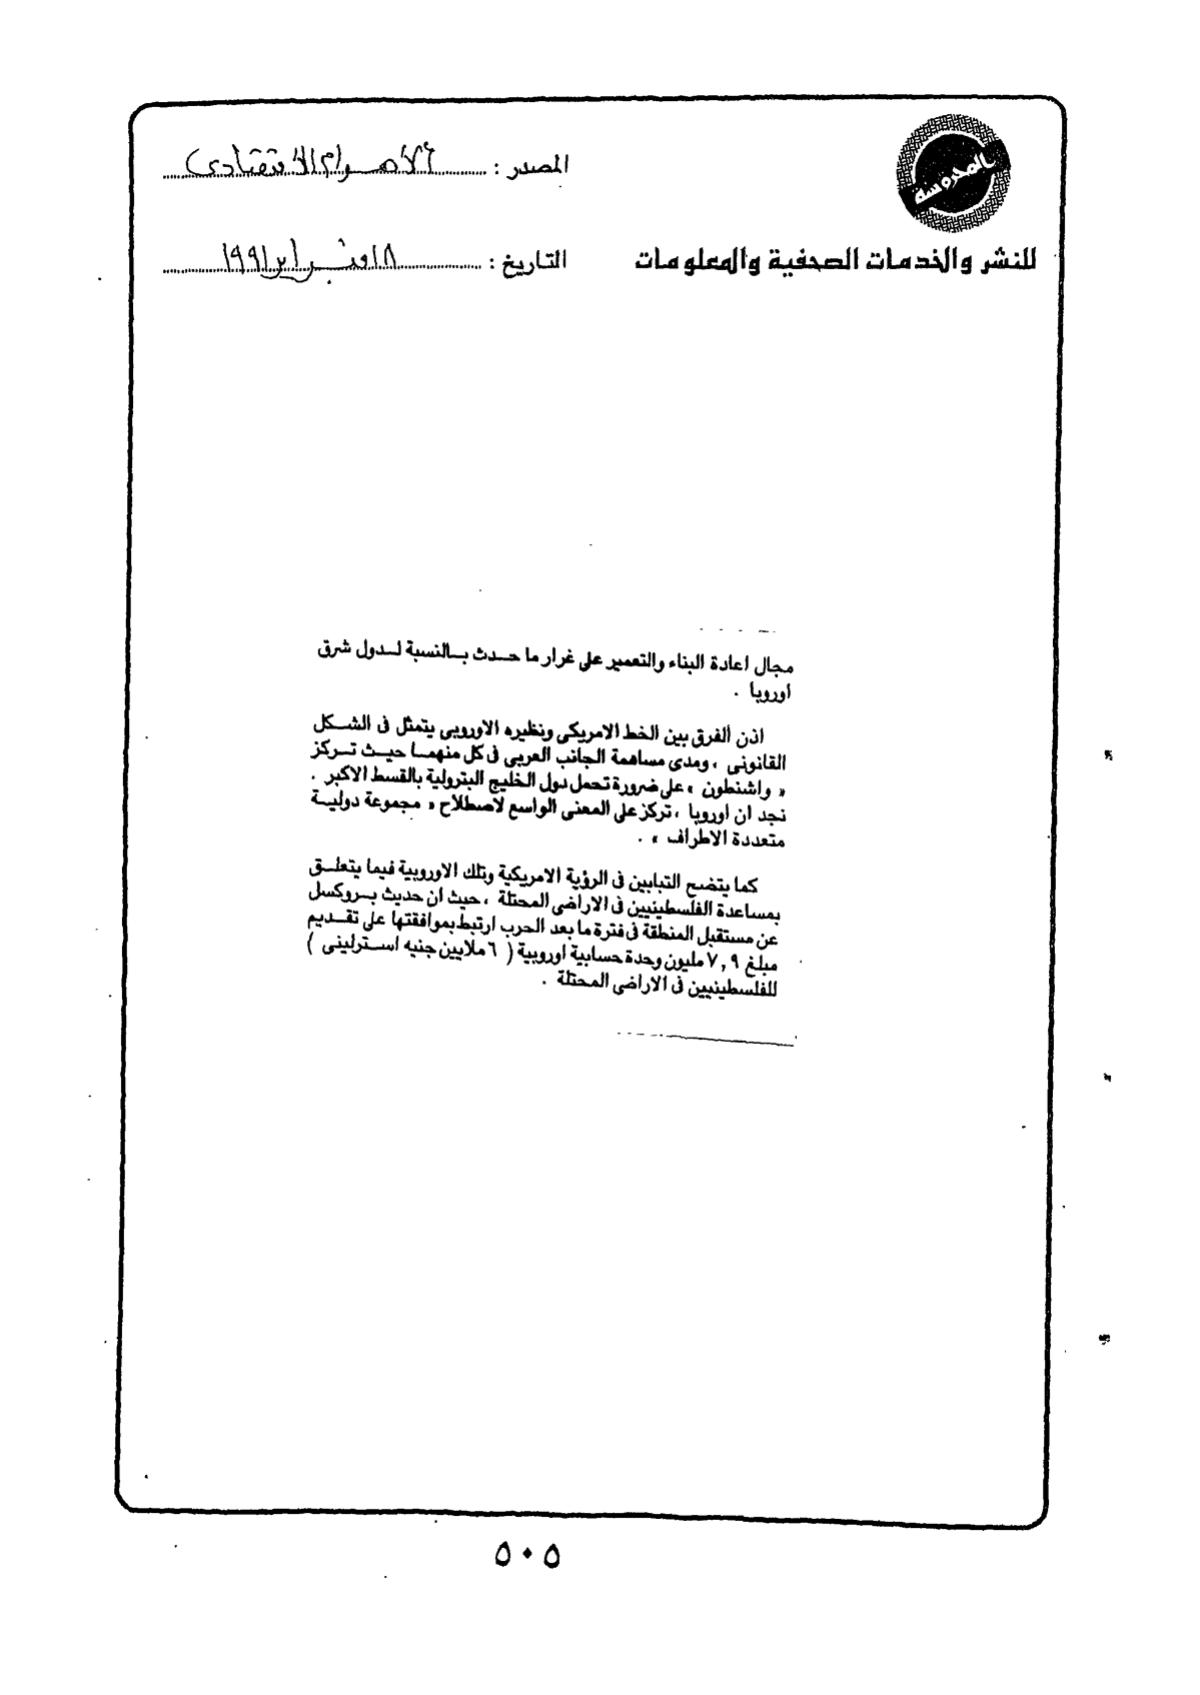 المحروسة
المصدر : الأهرام الاقتصادى
للنشر والخدمات الصحفية والمعلومات
التاريخ : ١٨ فبراير ١٩٩١
مجال اعادة البناء والتعمير على غرار ما حدث بالنسبة لدول شرق
اوروبا .
اذن الفرق بين الخط الامريكى ونظيره الاوروبى يتمثل فى الشكل
القانونى ، ومدى مساهمة الجانب العربى فى كل منهما حيث تركز
« واشنطون » على ضرورة تحمل دول الخليج البترولية بالقسط الاكبر .
نجد ان اوروبا ، تركز على المعنى الواسع لاصطلاح « مجموعة دولية
متعددة الاطراف » .
كما يتضح التبايين فى الرؤية الامريكية وتلك الاوروبية فيما يتعلق
بمساعدة الفلسطينيين فى الاراضى المحتلة ، حيث ان حديث بروكسل
عن مستقبل المنطقة فى فترة ما بعد الحرب ارتبط بموافقتها على تقديم
مبلغ ٧,٩ مليون وحدة حسابية اوروبية ( ٦ ملايين جنيه استرلينى )
للفلسطينيين فى الاراضى المحتلة .
٥٠٥